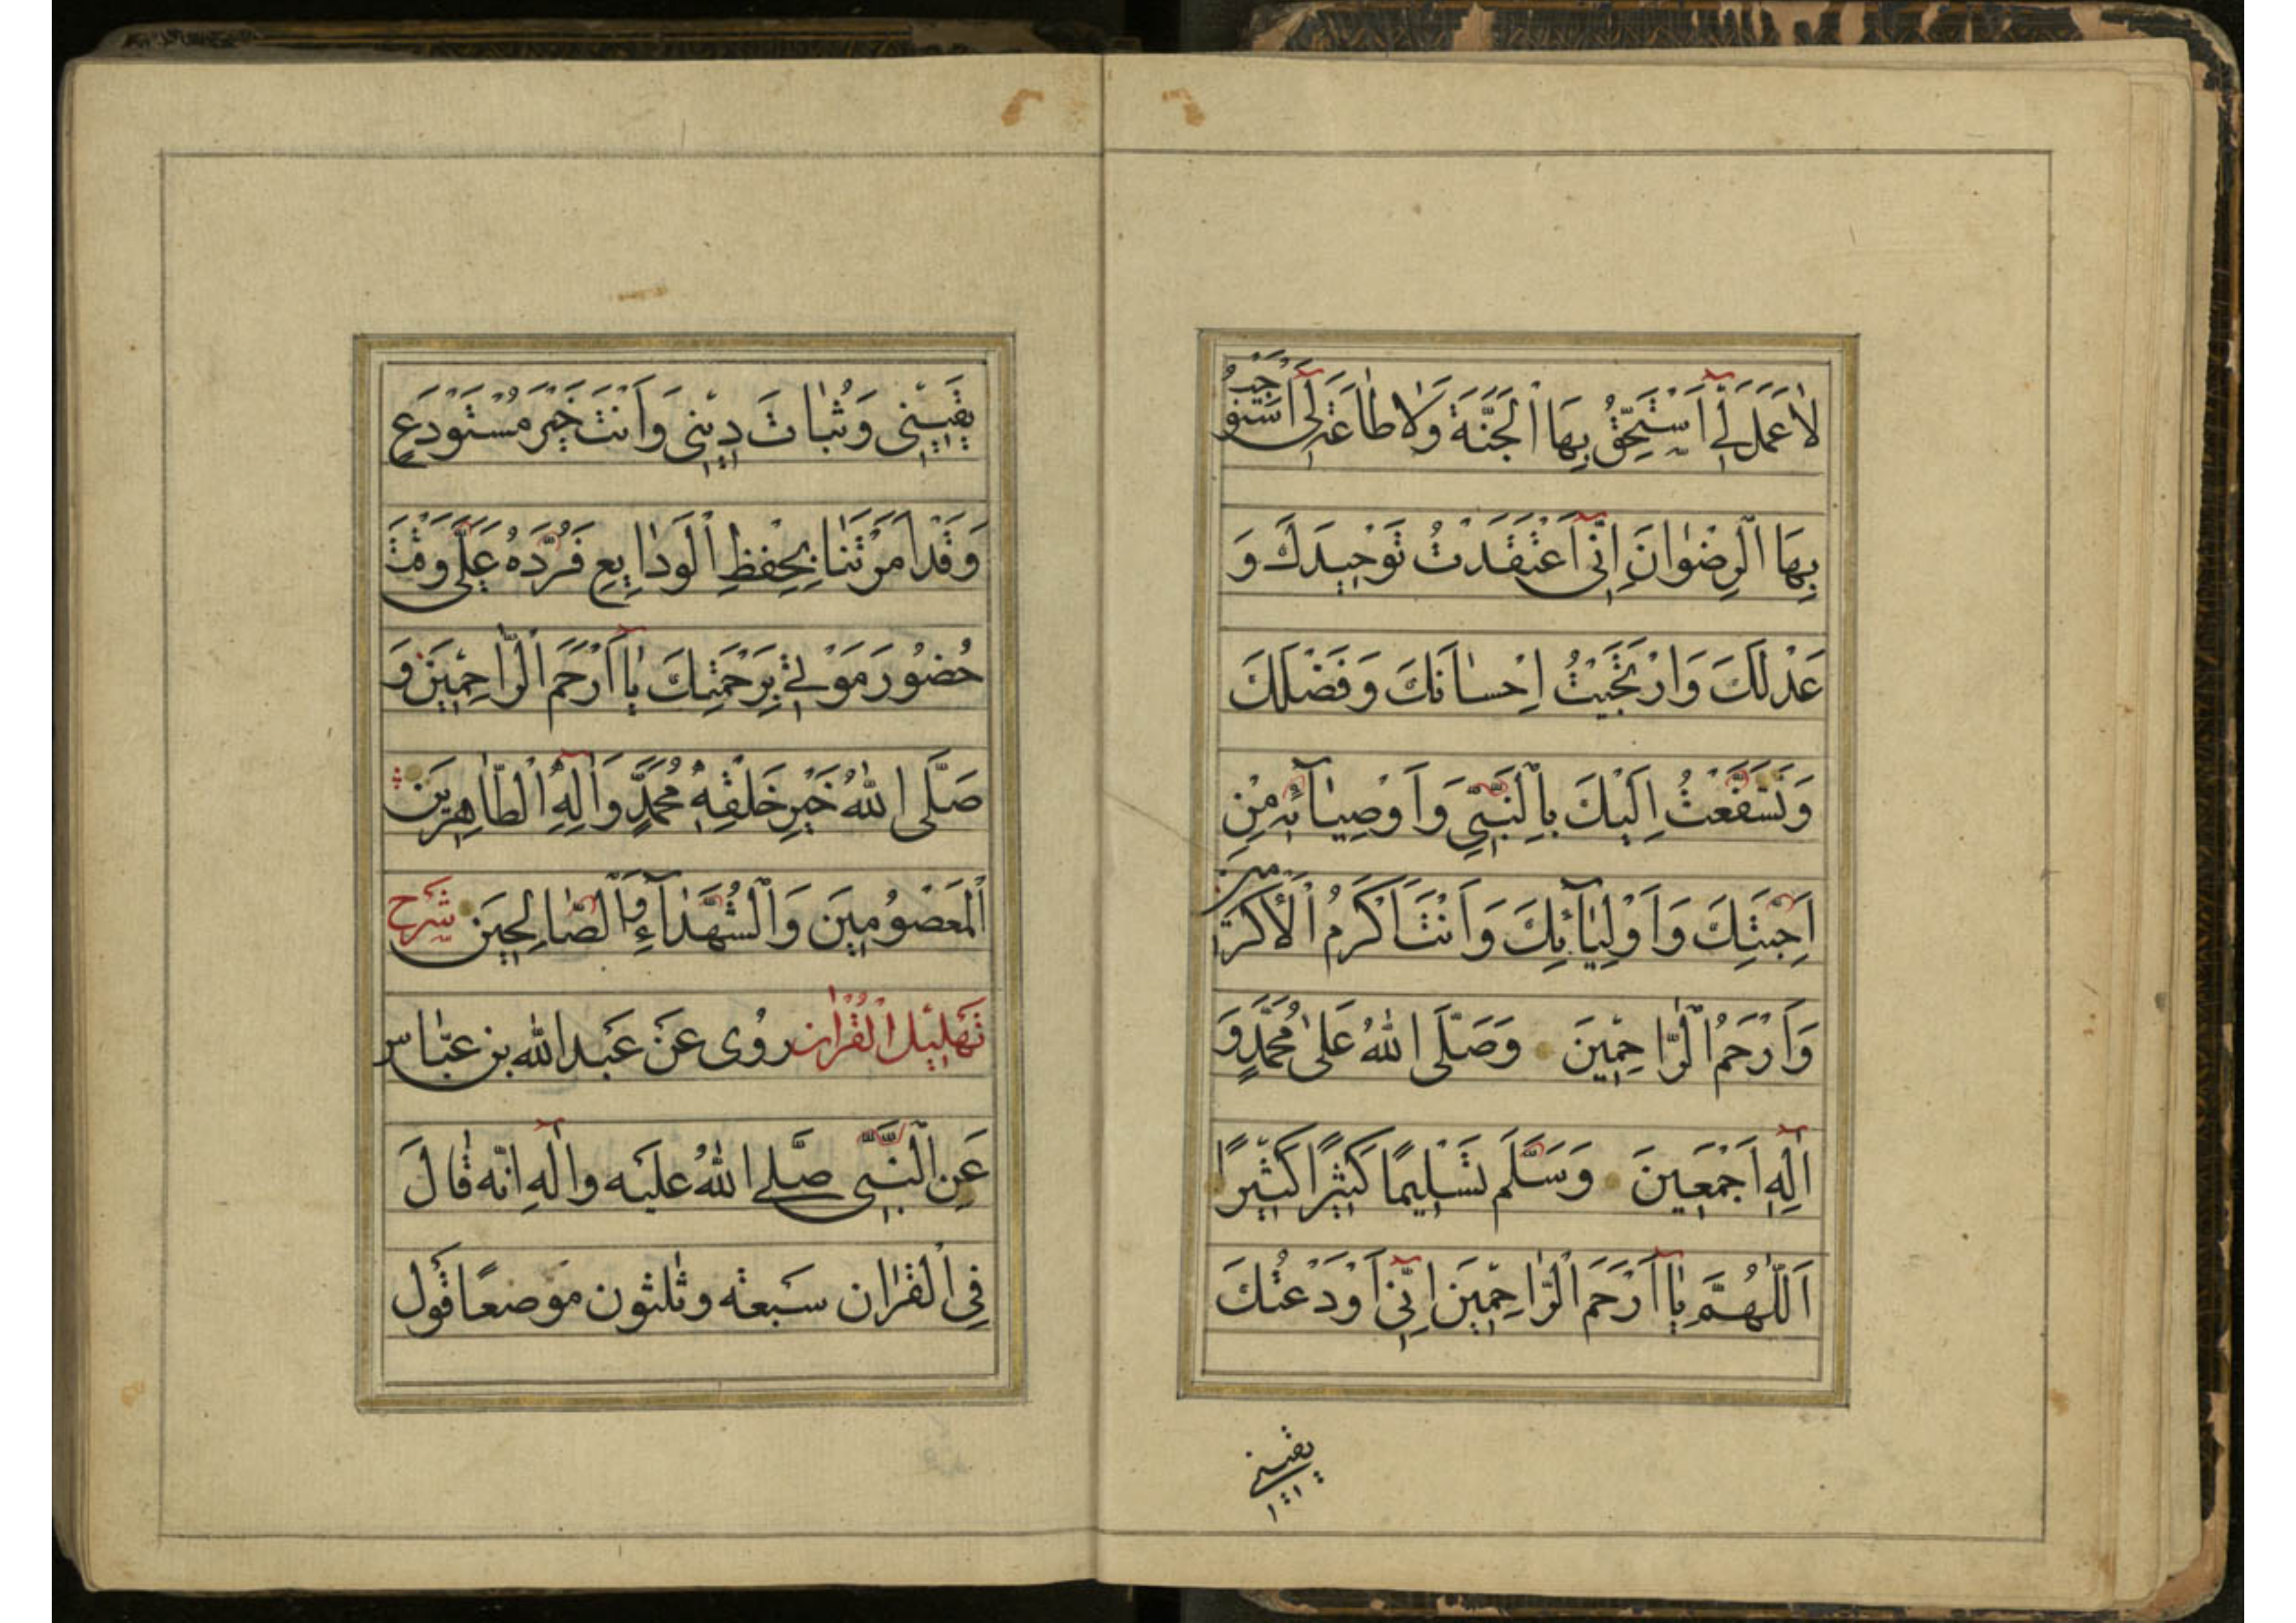 لاٰ عَمَلَ لِىٓ اَسْتَحِقُّ بِهَا الْجَنَّةَ وَلاٰ طٰاعَةَ لِىٓ اَسْتَوْجِبُ
بِهَا الْرِضْوٰانَ اِنِّىٓ اَعْتَقَدْتُ تَوْحِيدَكَ وَ
عَدْلَكَ وَارْتَجَيْتُ اِحْسٰانَكَ وَفَضْلَكَ
وَتَشَفَّعْتُ اِلَيْكَ بِالْنَّبِىِّ وَاَوْصِيٰآئِهِ مِنْ
اَحِبَّتِكَ وَاَوْلِيٰآئِكَ وَاَنْتَ اَكْرَمُ الْاَكْرَمِينَ
وَاَرْحَمُ الْرّٰاحِمِينَ وَصَلَّى اللهُ عَلىٰ مُحَمَّدٍ وَ
اٰلِهِ اَجْمَعِينَ وَسَلَّمَ تَسْلِيمًا كَثِيْرًا كَثِيْرًا
اَللّٰهُمَّ يٰا اَرْحَمَ الْرّٰاحِمِينَ اِنِّىٓ اَوْدَعْتُكَ
يقينى
يَقِيْنِى وَثُبٰاتَ دِيْنِى وَاَنْتَ خَيْرُ مُسْتَوْدَعٍ
وَقَدْ اَمَرْتَنٰا بِحِفْظِ الْوَدٰايِعِ فَرُدَّهُ عَلَىَّ وَقْتَ
حُضُورِ مَوْتِى بِرَحْمَتِكَ يٰا اَرْحَمَ الْرّٰاحِمِينَ وَ
صَلَّى اللهُ خَيْرِ خَلْقِهِ مُحَمَّدٍ وَاٰلِهِ الْطّٰاهِرِينَ
الْمَعْصُومِينَ وَالْشُّهَدٰآءِ وَالْصّٰالِحِينَ شرح
تَهْلِيْلِ الْقُرْاٰن رُوى عَنْ عَبدالله بن عبّٰاس
عَنِ الْنَّبِىِّ صَلَّى اللهُ عليَه واٰلِهِ انّه قٰالَ
فِى الْقرٰان سَبعة وثلٰثون مَوضعًا قَول